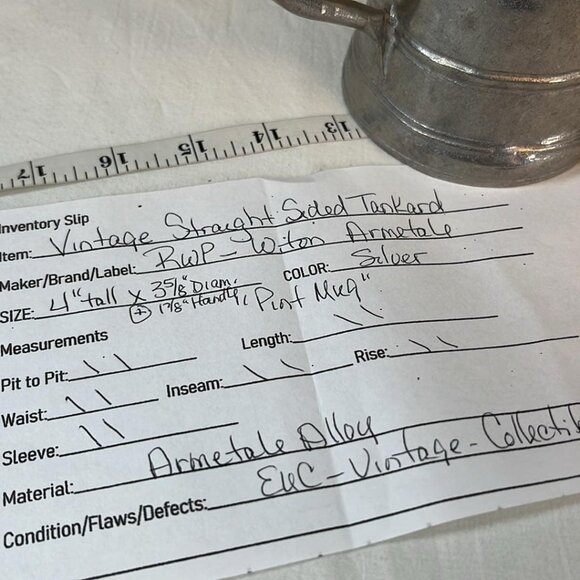 17 16 15 14 13
Inventory Slip
Item: Vintage Straight Sided Tankard
Maker/Brand/Label: RWP - Wilton Armetale
SIZE: 4" tall x 3 5/8" Diam. COLOR: Silver
+ 1 7/8" Handle, "Pint Mug"
Measurements
Pit to Pit: \ \ Length: \ \
Waist: \ \ Inseam: \ \ Rise: \ \
Sleeve: \ \
Material: Armetale Alloy
Condition/Flaws/Defects: EUC - Vintage - Collectib